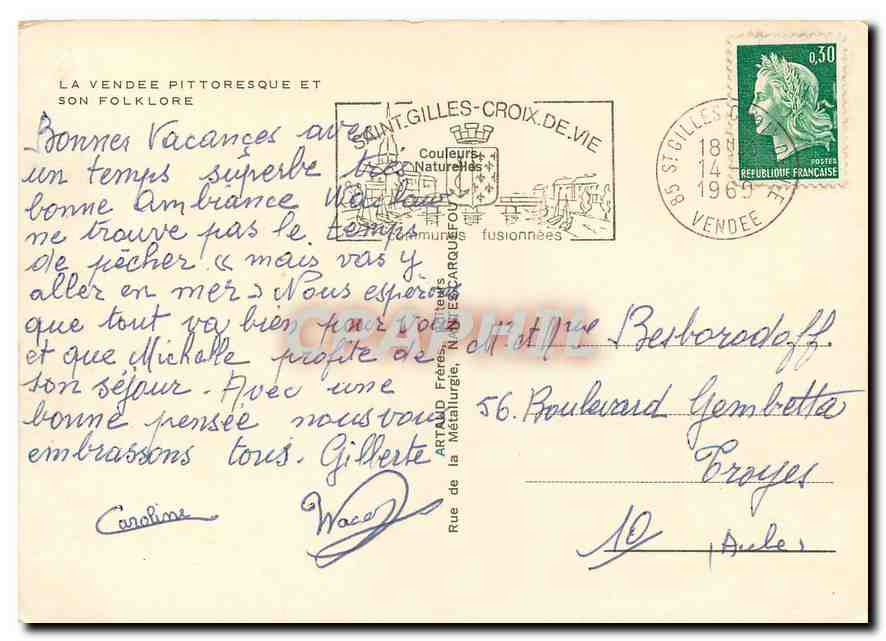 LA VENDEE PITTORESQUE ET
SON FOLKLORE
Bonnes Vacances avec
un temps superbe très
bonne ambiance Waclaw
ne trouve pas le temps
de pêcher « mais vas y
aller en mer » Nous espérons
que tout va bien pour vous
et que Michelle profite de
son séjour. Avec une
bonne pensée nous vous
embrassons tous. Gilberte
Caroline
SAINT.GILLES-CROIX.DE.VIE
Couleurs
Naturelles
communes fusionnées
ARTAUD Frères, Éditeurs
Rue de la Métallurgie, NANTES-CARQUEFOU
CRAPHIL
0,30
POSTES
REPUBLIQUE FRANÇAISE
85 ST GILLES
18H
14
1969
VENDEE
Mr et Mme Besborodoff
56. Boulevard Gambetta
Troyes
10 (Aube)